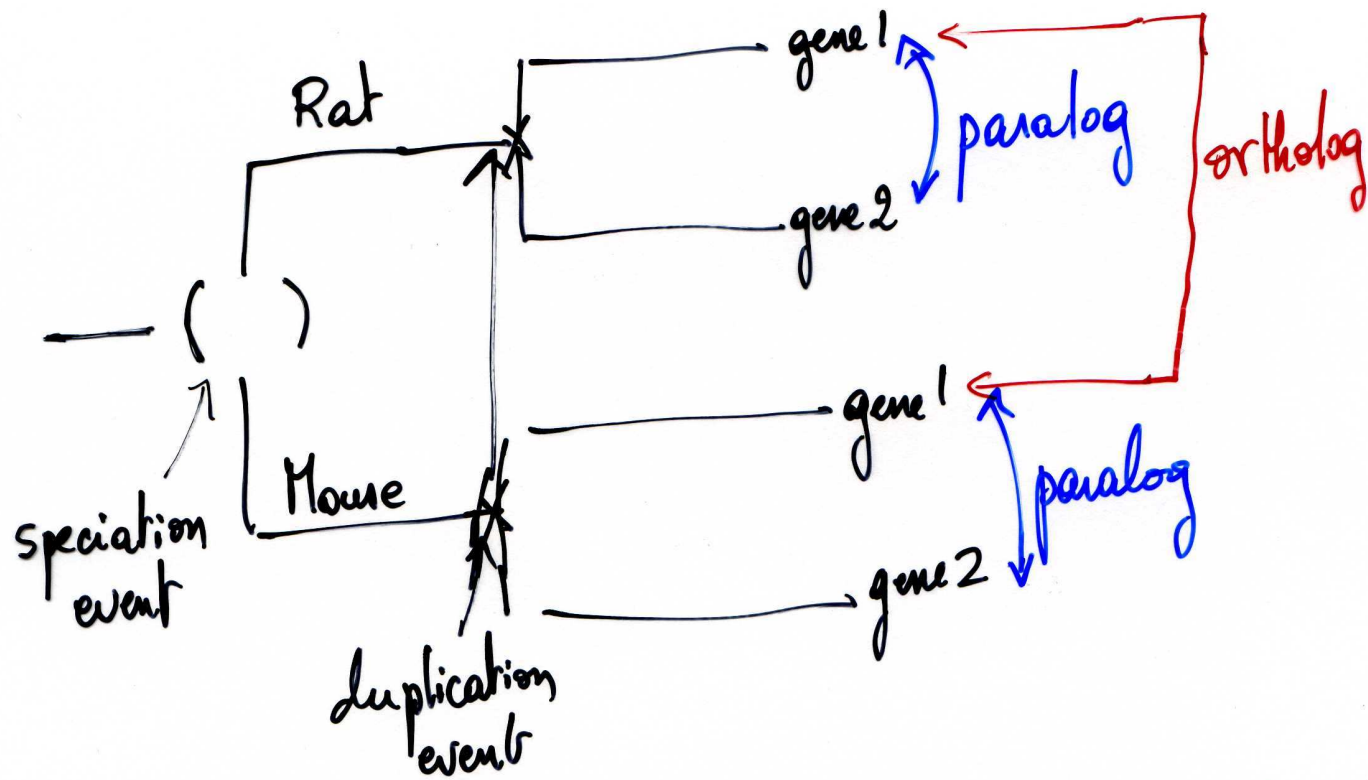 gene 1
Rat
paralog
ortholog
gene 2
gene 1
Mouse
paralog
speciation
event
gene 2
duplication
event